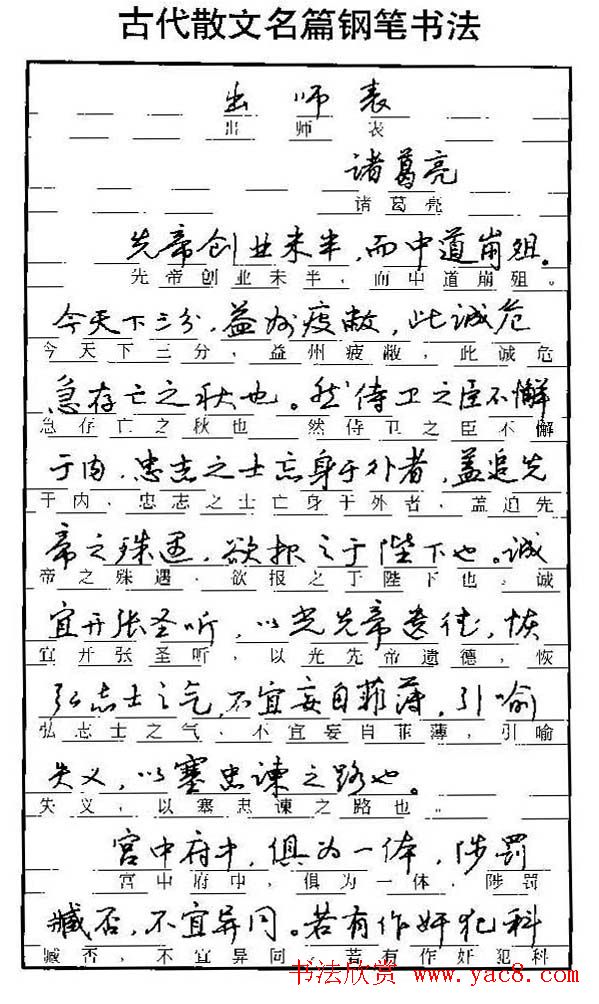 古代散文名篇钢笔书法
出师表
出师表
诸葛亮
诸葛亮
先帝创业未半，而中道崩殂。
先帝创业未半，而中道崩殂。
今天下三分，益州疲敝，此诚危
今天下三分，益州疲敝，此诚危
急存亡之秋也。然侍卫之臣不懈
急存亡之秋也 然侍卫之臣不懈
于内，忠志之士忘身于外者，盖追先
于内，忠志之士亡身于外者，盖追先
帝之殊遇，欲报之于陛下也。诚
帝之殊遇，欲报之于陛下也。诚
宜开张圣听，以光先帝遗德，恢
宜开张圣听，以光先帝遗德，恢
弘志士之气，不宜妄自菲薄，引喻
弘志士之气，不宜妄自菲薄，引喻
失义，以塞忠谏之路也。
失义，以塞忠谏之路也。
宫中府中，俱为一体，陟罚
宫中府中，俱为一体，陟罚
臧否，不宜异同。若有作奸犯科
臧否，不宜异同 若有作奸犯科
书法欣赏 www.yac8.com